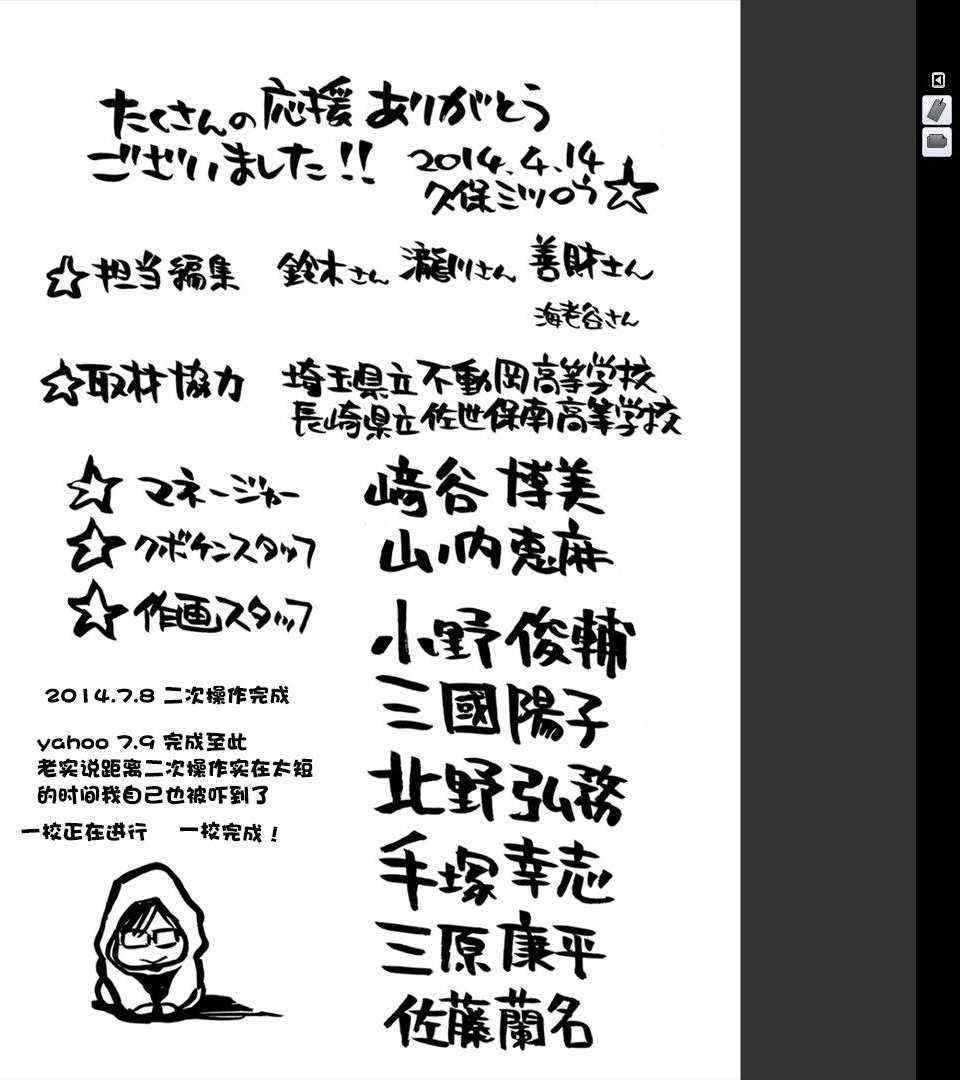 たくさんの応援ありがとう
ございました!!
2014.4.14
久保ミツロウ☆
☆担当編集 鈴木さん 瀧川さん 善財さん
海老谷さん
☆取材協力 埼玉県立不動岡高等学校
長崎県立佐世保南高等学校
☆マネージャー 﨑谷博美
☆クボケンスタッフ 山内恵麻
☆作画スタッフ 小野俊輔
三國陽子
北野弘務
手塚幸志
三原康平
佐藤蘭名
2014.7.8 二次操作完成
yahoo 7.9 完成至此
老实说距离二次操作实在太短
的时间我自己也被吓到了
一校正在进行 一校完成!